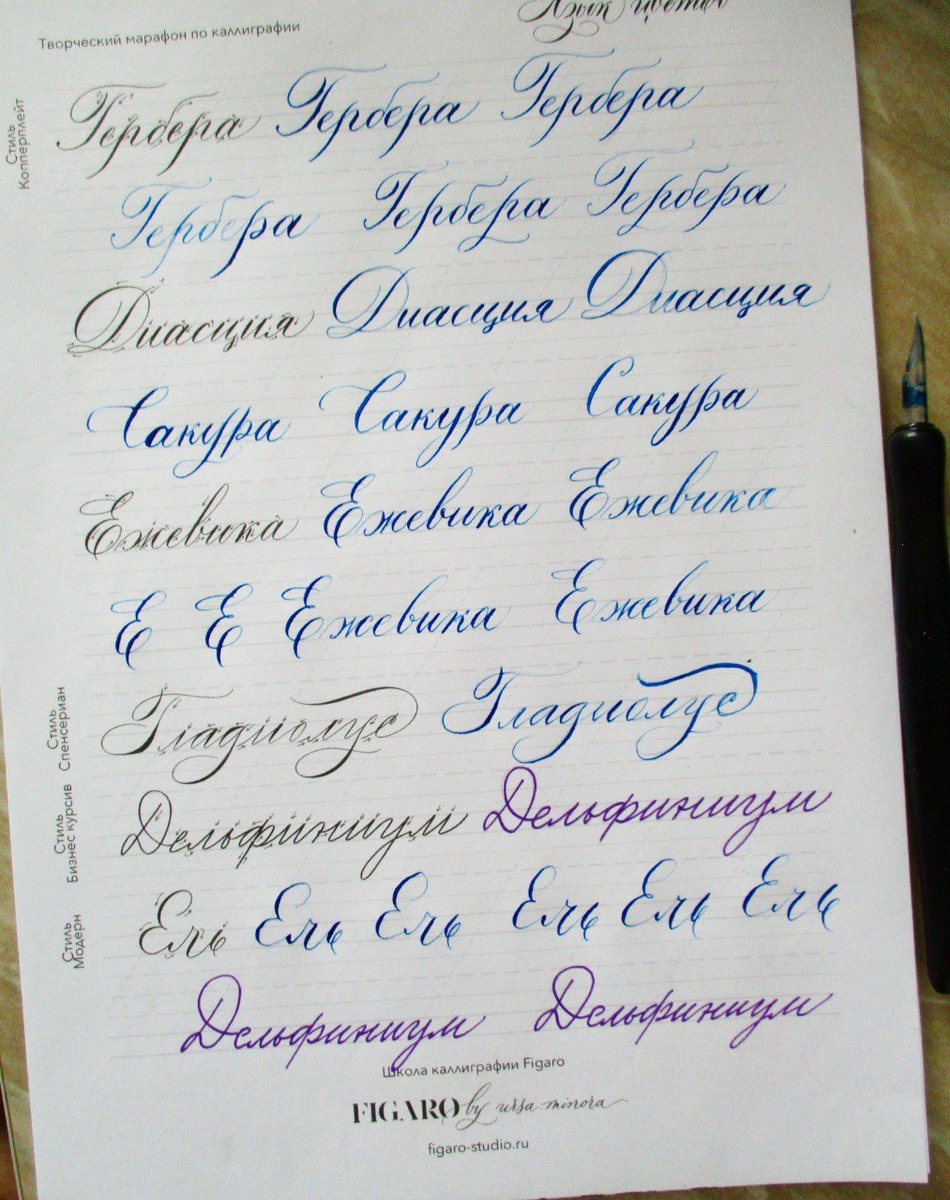 Язык цветов
Творческий марафон по каллиграфии
Стиль
Копперплейт
Гербера Гербера Гербера
Гербера Гербера Гербера
Диасция Диасция Диасция
Сакура Сакура Сакура
Ежевика Ежевика Ежевика
Е Е Ежевика Ежевика
Стиль
Спенсериан
Гладиолус Гладиолус
Стиль
Бизнес курсив
Дельфиниум Дельфиниум
Стиль
Модерн
Ель Ель Ель Ель Ель Ель
Дельфиниум Дельфиниум
Школа каллиграфии Figaro
FIGARO by ursa-minora
figaro-studio.ru